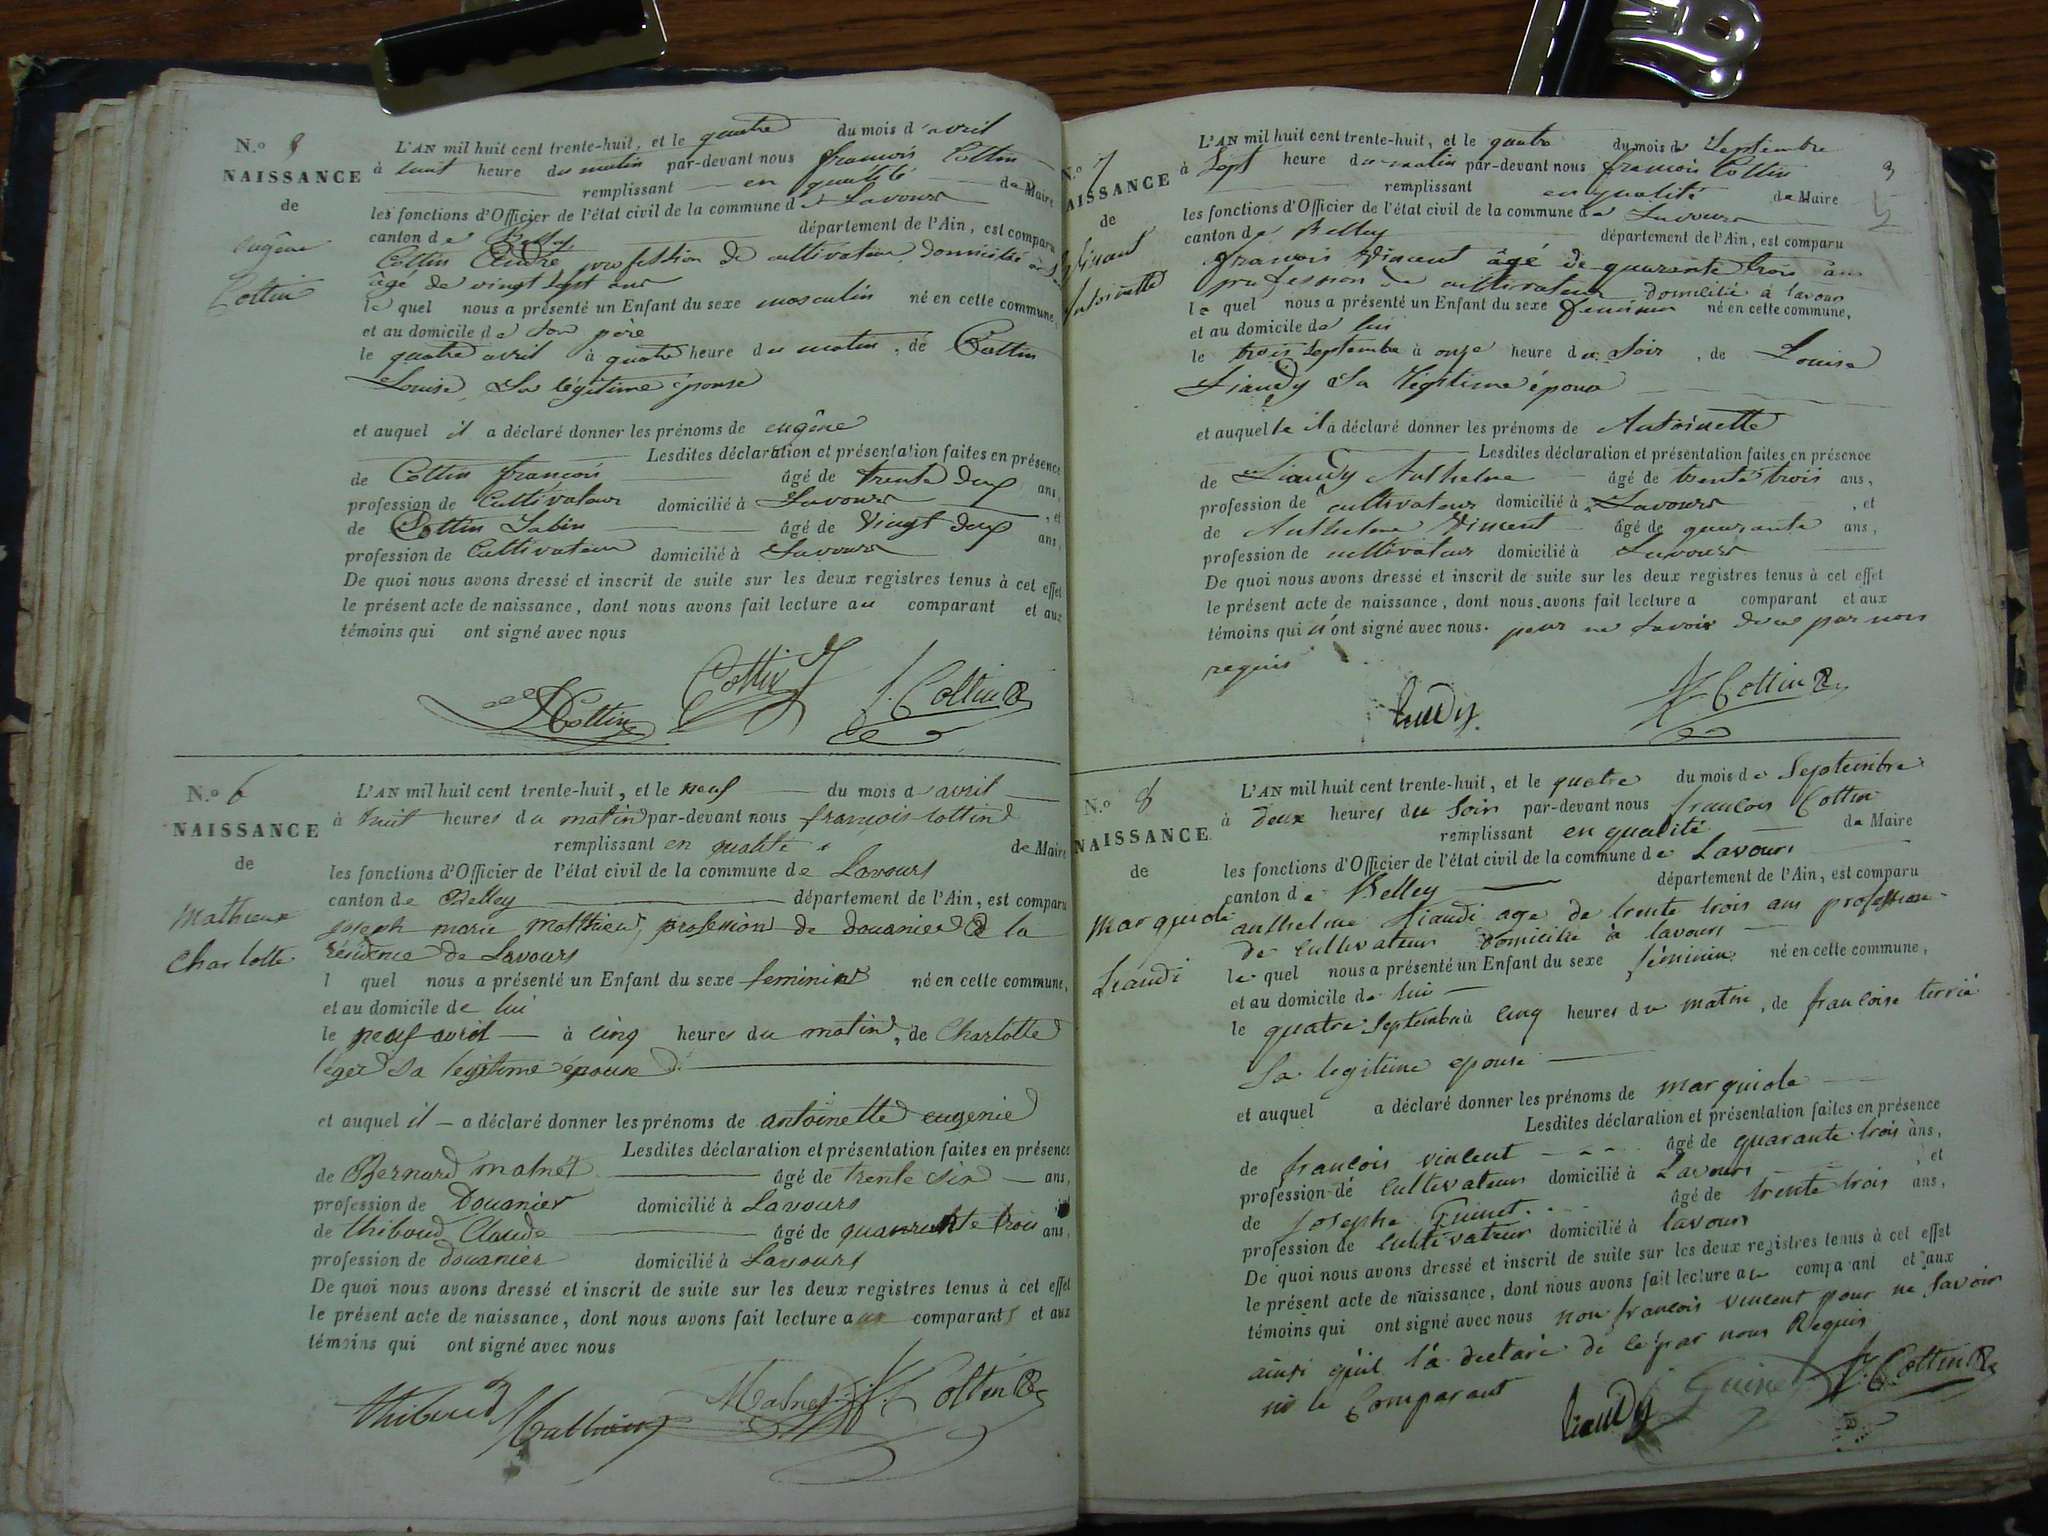 N.o
NAISSANCE
de
eugêne
Cottin
L'AN mil huit cent trente-huit, et le quatre du mois d'avril
à huit heure du matin par-devant nous francois Cottin
remplissant en qualité de Maire
les fonctions d'Officier de l'état civil de la commune de Lavours
canton de Belley département de l'Ain, est comparu
Cottin André profession de cultivateur domicilié à
âgé de vingt sept ans
le quel nous a présenté un Enfant du sexe masculin né en cette commune,
et au domicile de son père
le quatre avril à quatre heure du matin, de Cottin
Louise Sa légitime épouse
et auquel il a déclaré donner les prénoms de eugêne
Lesdites déclaration et présentation faites en présence
de Cottin françois âgé de trente deux ans,
profession de Cultivateur domicilié à Lavours, et
de Cottin Sabin âgé de vingt deux ans,
profession de Cultivateur domicilié à Lavours
De quoi nous avons dressé et inscrit de suite sur les deux registres tenus à cet effet
le présent acte de naissance, dont nous avons fait lecture au comparant et aux
témoins qui ont signé avec nous
Cottin Cottin f. Cottin
N.o 6
NAISSANCE
de
Mathieux
Charlotte
L'AN mil huit cent trente-huit, et le neuf du mois d avril
à huit heures du matin par-devant nous françois Cottin
remplissant en qualité de Maire
les fonctions d'Officier de l'état civil de la commune de Lavours
canton de Belley département de l'Ain, est comparu
joseph marie Matthieu, profession de douanier à la
résidence de Lavours
l quel nous a présenté un Enfant du sexe feminin né en cette commune,
et au domicile de lui
le neuf avril à cinq heures du matin, de Charlotte
léger Sa légitime épouse
et auquel il a déclaré donner les prénoms de antoinette eugenie
Lesdites déclaration et présentation faites en présence
de Bernard malnet âgé de trente six ans,
profession de Douanier domicilié à Lavours
de thiboud Claude âgé de quarente trois ans,
profession de douanier domicilié à Lavours
De quoi nous avons dressé et inscrit de suite sur les deux registres tenus à cet effet
le présent acte de naissance, dont nous avons fait lecture aux comparants et aux
témoins qui ont signé avec nous
thiboud Matthieu Malnet f. Cottin
N.o 7
AISSANCE
de
Vincent
Antoinette
L'AN mil huit cent trente-huit, et le quatre du mois de Septembre
à Sept heure du matin par-devant nous francois Cottin
remplissant en qualité de Maire
les fonctions d'Officier de l'état civil de la commune de Lavours
canton de Belley département de l'Ain, est comparu
francois Vincent âgé de quarente trois ans
profession de cultivateur domicilié à lavours
le quel nous a présenté un Enfant du sexe feminin né en cette commune,
et au domicile de lui
le trois Septembre à onze heure du Soir, de Louise
Liaudy Sa légitime épouse
et auquel il a déclaré donner les prénoms de Antoinette
Lesdites déclaration et présentation faites en présence
de Liaudy Anthelme âgé de trente trois ans,
profession de cultivateur domicilié à Lavours, et
de Anthelme Vincent âgé de quarante ans,
profession de cultivateur domicilié à Lavours
De quoi nous avons dressé et inscrit de suite sur les deux registres tenus à cet effet
le présent acte de naissance, dont nous avons fait lecture a comparant et aux
témoins qui n'ont signé avec nous. pour ne Savoir de ce par nous
requis
Liaudy f. Cottin
N.o 8
NAISSANCE
de
Marguiole
Liaudi
L'AN mil huit cent trente-huit, et le quatre du mois de Septembre
à deux heures du Soir par-devant nous françois Cottin
remplissant en qualité de Maire
les fonctions d'Officier de l'état civil de la commune de Lavours
canton de Belley département de l'Ain, est comparu
anthelme Liaudi age de trente trois ans profession
de cultivateur domicilié à lavours
le quel nous a présenté un Enfant du sexe féminin né en cette commune,
et au domicile de lui
le quatre Septembre à cinq heures du matin, de françoise terrié
Sa legitime epouse
et auquel a déclaré donner les prénoms de marguiole
Lesdites déclaration et présentation faites en présence
de françois vincent âgé de quarante trois ans,
profession de cultivateur domicilié à Lavours et
de Josephe Guinet âgé de trente trois ans,
profession de cultivateur domicilié à lavours
De quoi nous avons dressé et inscrit de suite sur les deux registres tenus à cet effet
le présent acte de naissance, dont nous avons fait lecture au comparant et aux
témoins qui ont signé avec nous non françois vincent pour ne Savoir
ainsi qu'il l'a declaré de ce par nous Requis
ni le Comparant
Liaudy Guinet f. Cottin